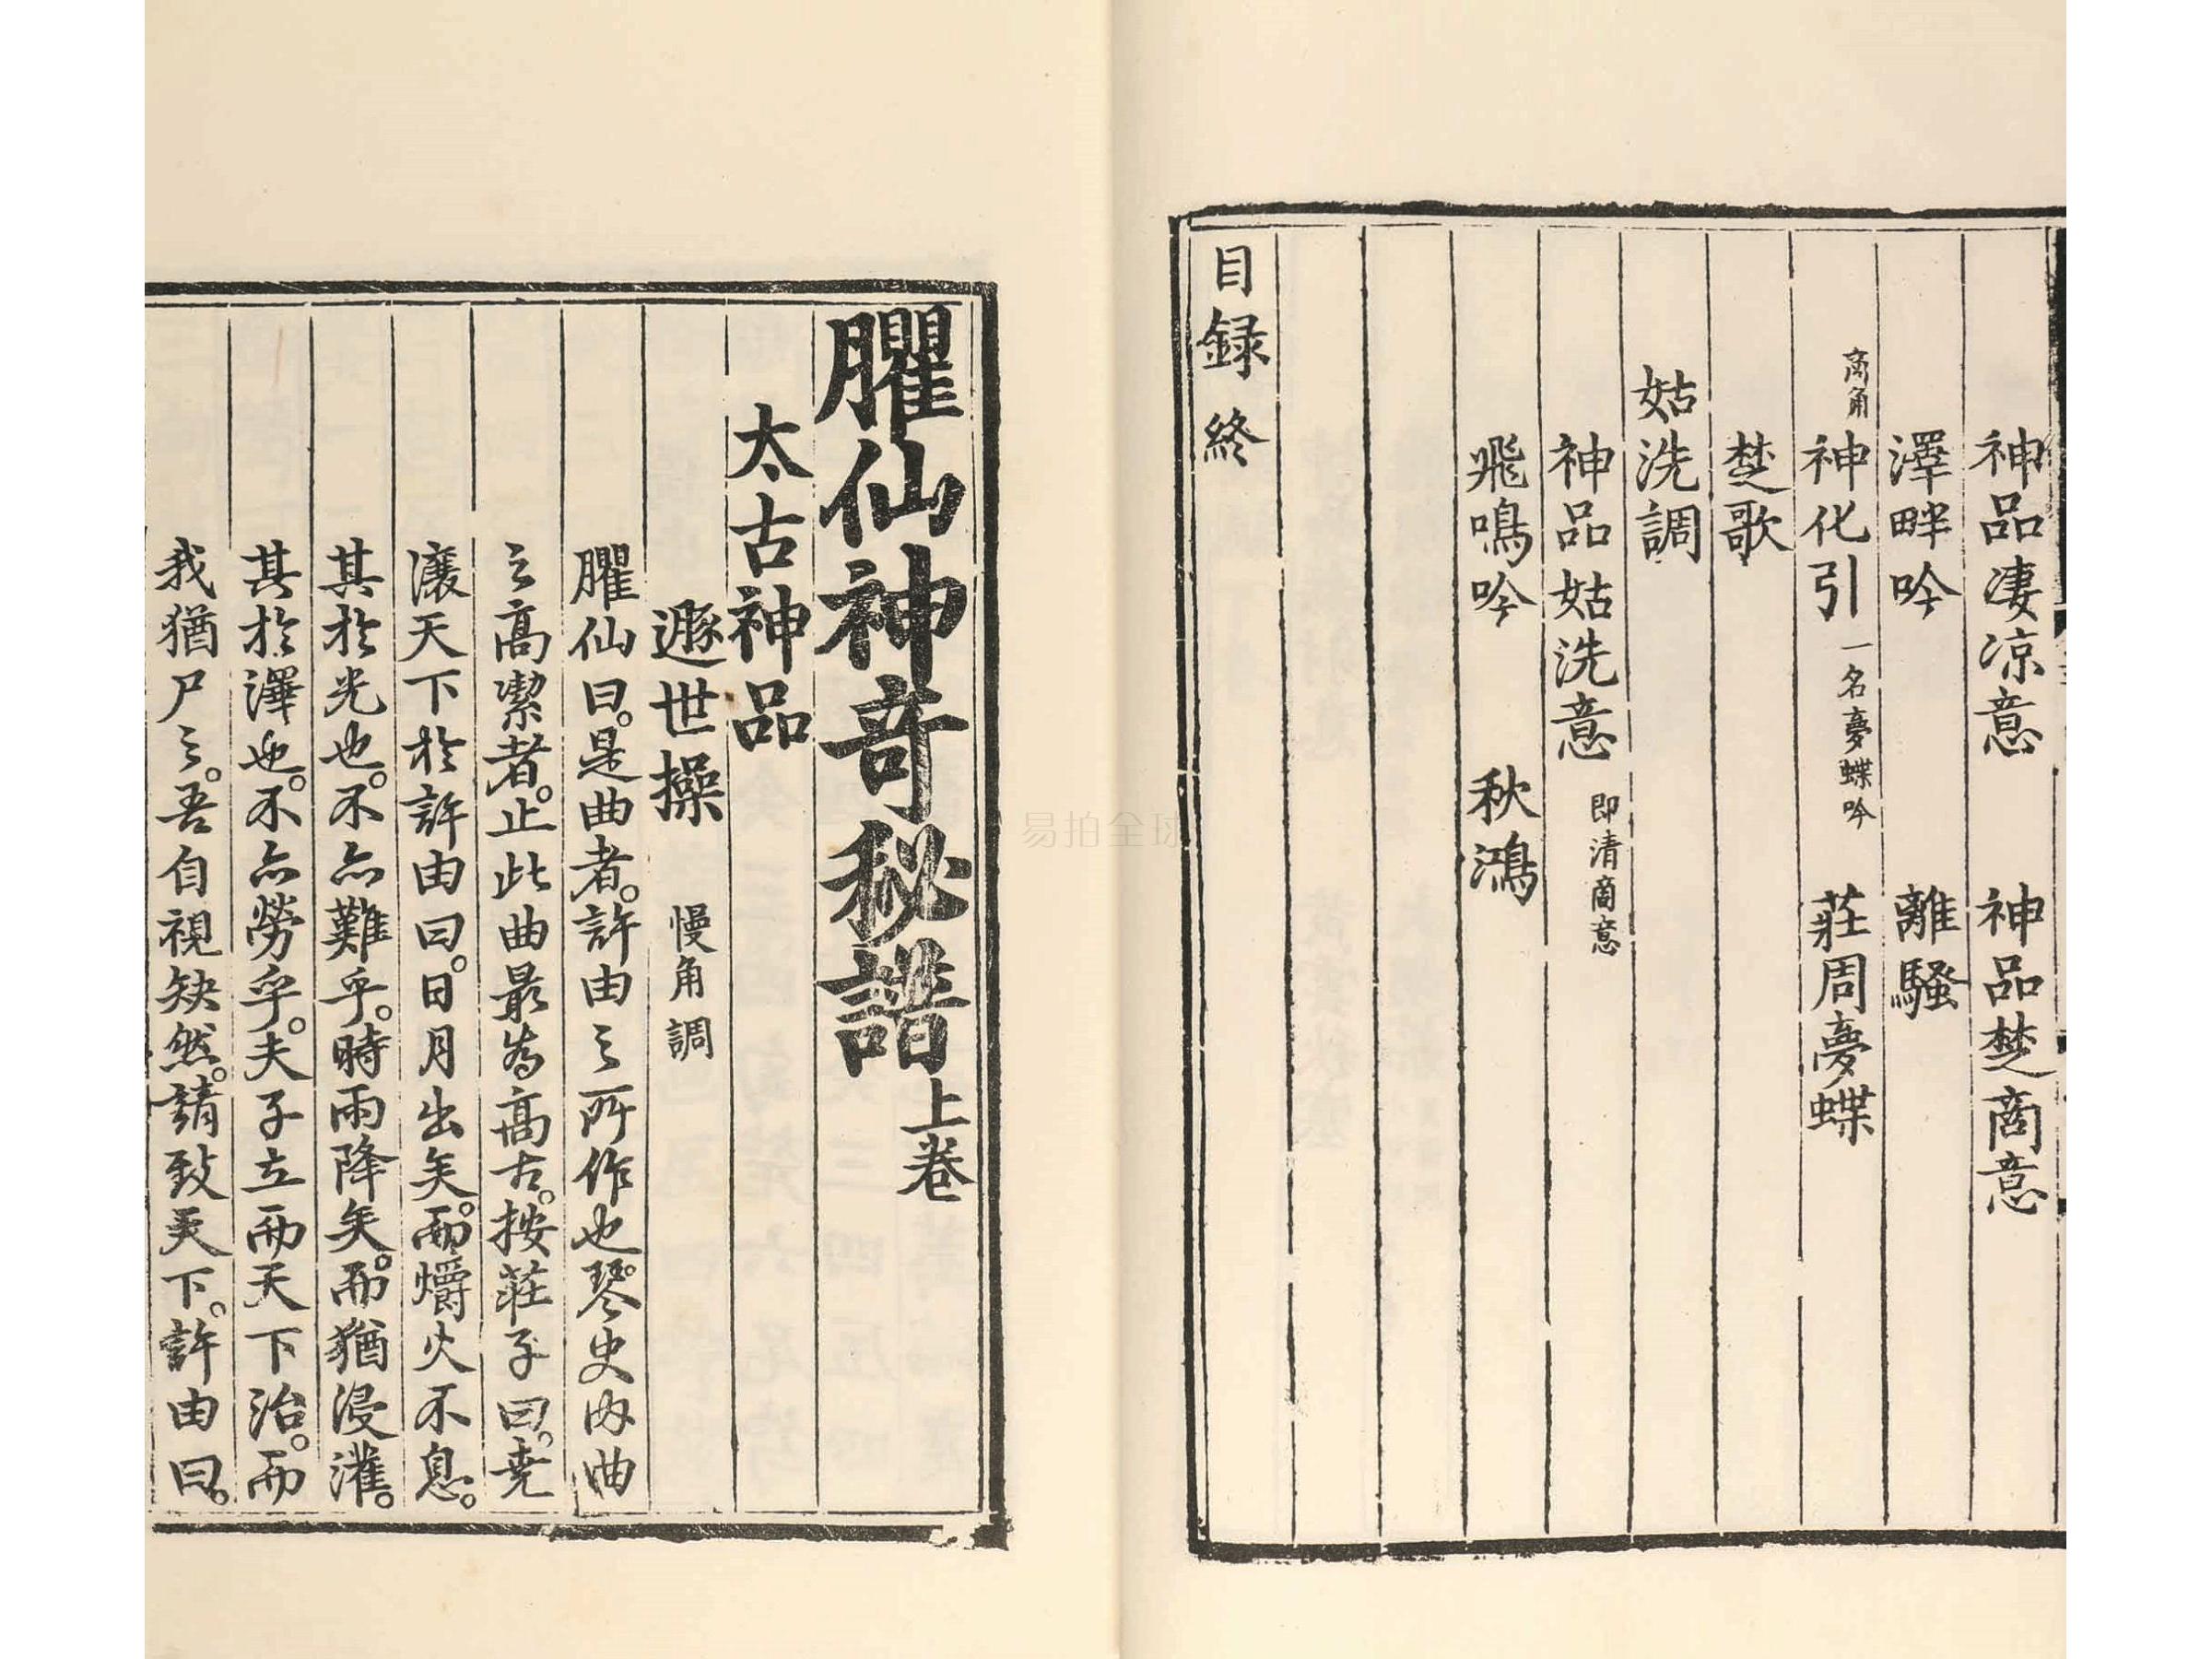 神品凄凉意 神品楚商意
澤畔吟 離騷
商角 神化引 一名夢蝶吟 莊周夢蝶
楚歌
姑洗調
神品姑洗意 即清商意
飛鳴吟 秋鴻
目録終
臞仙神奇秘譜上卷
太古神品
遯世操 慢角調
臞仙曰。是曲者。許由之所作也。琴史内曲
之高潔者。止此曲最為高古。按莊子曰。尭
讓天下於許由曰。日月出矣。而爝火不息。
其於光也。不亦難乎。時雨降矣。而猶浸灌。
其於澤也。不亦勞乎。夫子立而天下治。而
我猶尸之。吾自視缺然。請致天下。許由曰。
易拍全球